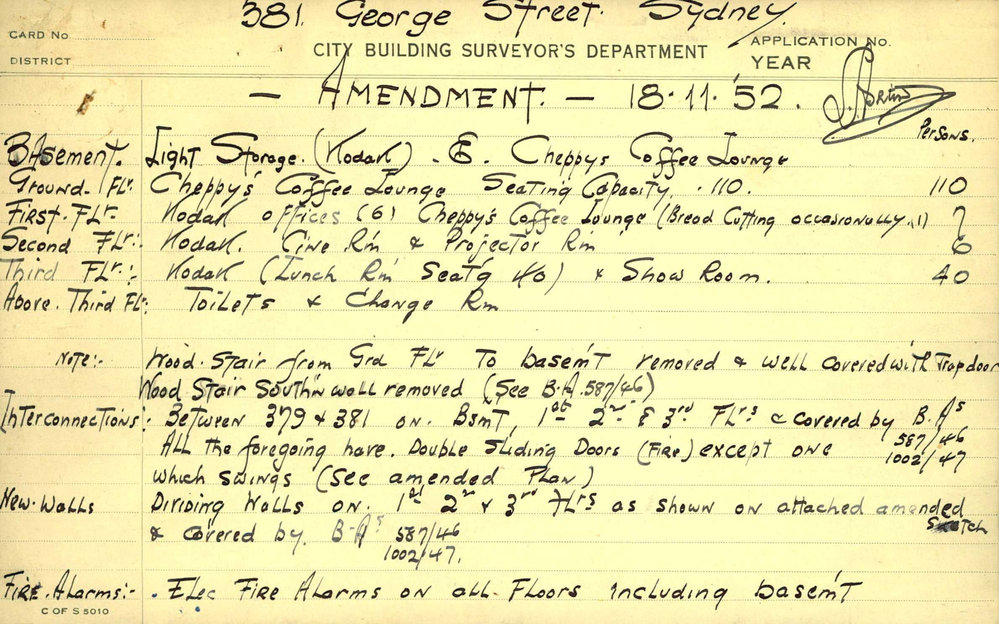 381. George Street. Sydney.
CARD No.
DISTRICT
CITY BUILDING SURVEYOR'S DEPARTMENT
APPLICATION No.
YEAR
- AMENDMENT. - 18.11.'52.
Persons.
Basement. Light Storage. (Kodak) . &. Cheppys Coffee Lounge
Ground Flr. Cheppy's Coffee Lounge Seating Capacity . 110. 110
First. Flr. Kodak offices (6) Cheppy's Coffee Lounge (Bread Cutting occasionally .1) 7
Second Flr:. Kodak. Cine Rm & Projector Rm 6
Third Flr:. Kodak (Lunch Rm Seat'g 40) & Show Room. 40
Above. Third Flr: Toilets & Change Rm
NOTE:- Wood. Stair from Grd Flr to basem't removed & well covered with Trapdoor
Wood Stair South'n wall removed (See B.A. 587/46)
Interconnections:. Between 379 & 381 on. Bsmt, 1st 2nd & 3rd Flrs & covered by B.As
587/46
All the foregoing have. Double Sliding Doors (Fire) except one 1002/47
which swings (See amended Plan)
New. Walls Dividing Walls on. 1st 2nd & 3rd Flrs as shown on attached amended
Sketch
& covered by. B-As 587/46
1002/47.
Fire. Alarms:- . Elec Fire Alarms on all. Floors including basem't
C OF S 5010